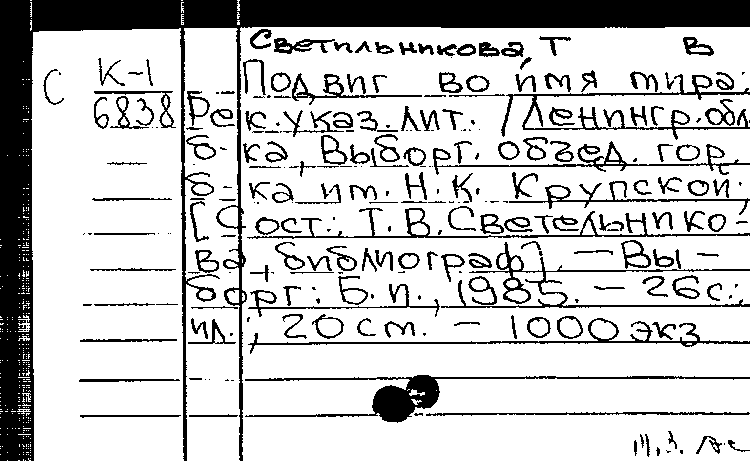 Светильникова, Т В
С К-1 Подвиг во имя мира:
6838 Рек. указ. лит. / Ленингр. обл.
б-ка, Выборг. объед. гор.
б-ка им. Н. К. Крупской;
[Сост.: Т. В. Светельнико-
ва, библиограф]. — Вы-
борг: Б. и., 1985. — 26 с.:
ил.; 20 см. — 1000 экз